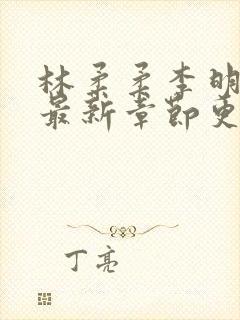 林柔柔李明
最新章节更
丁亮